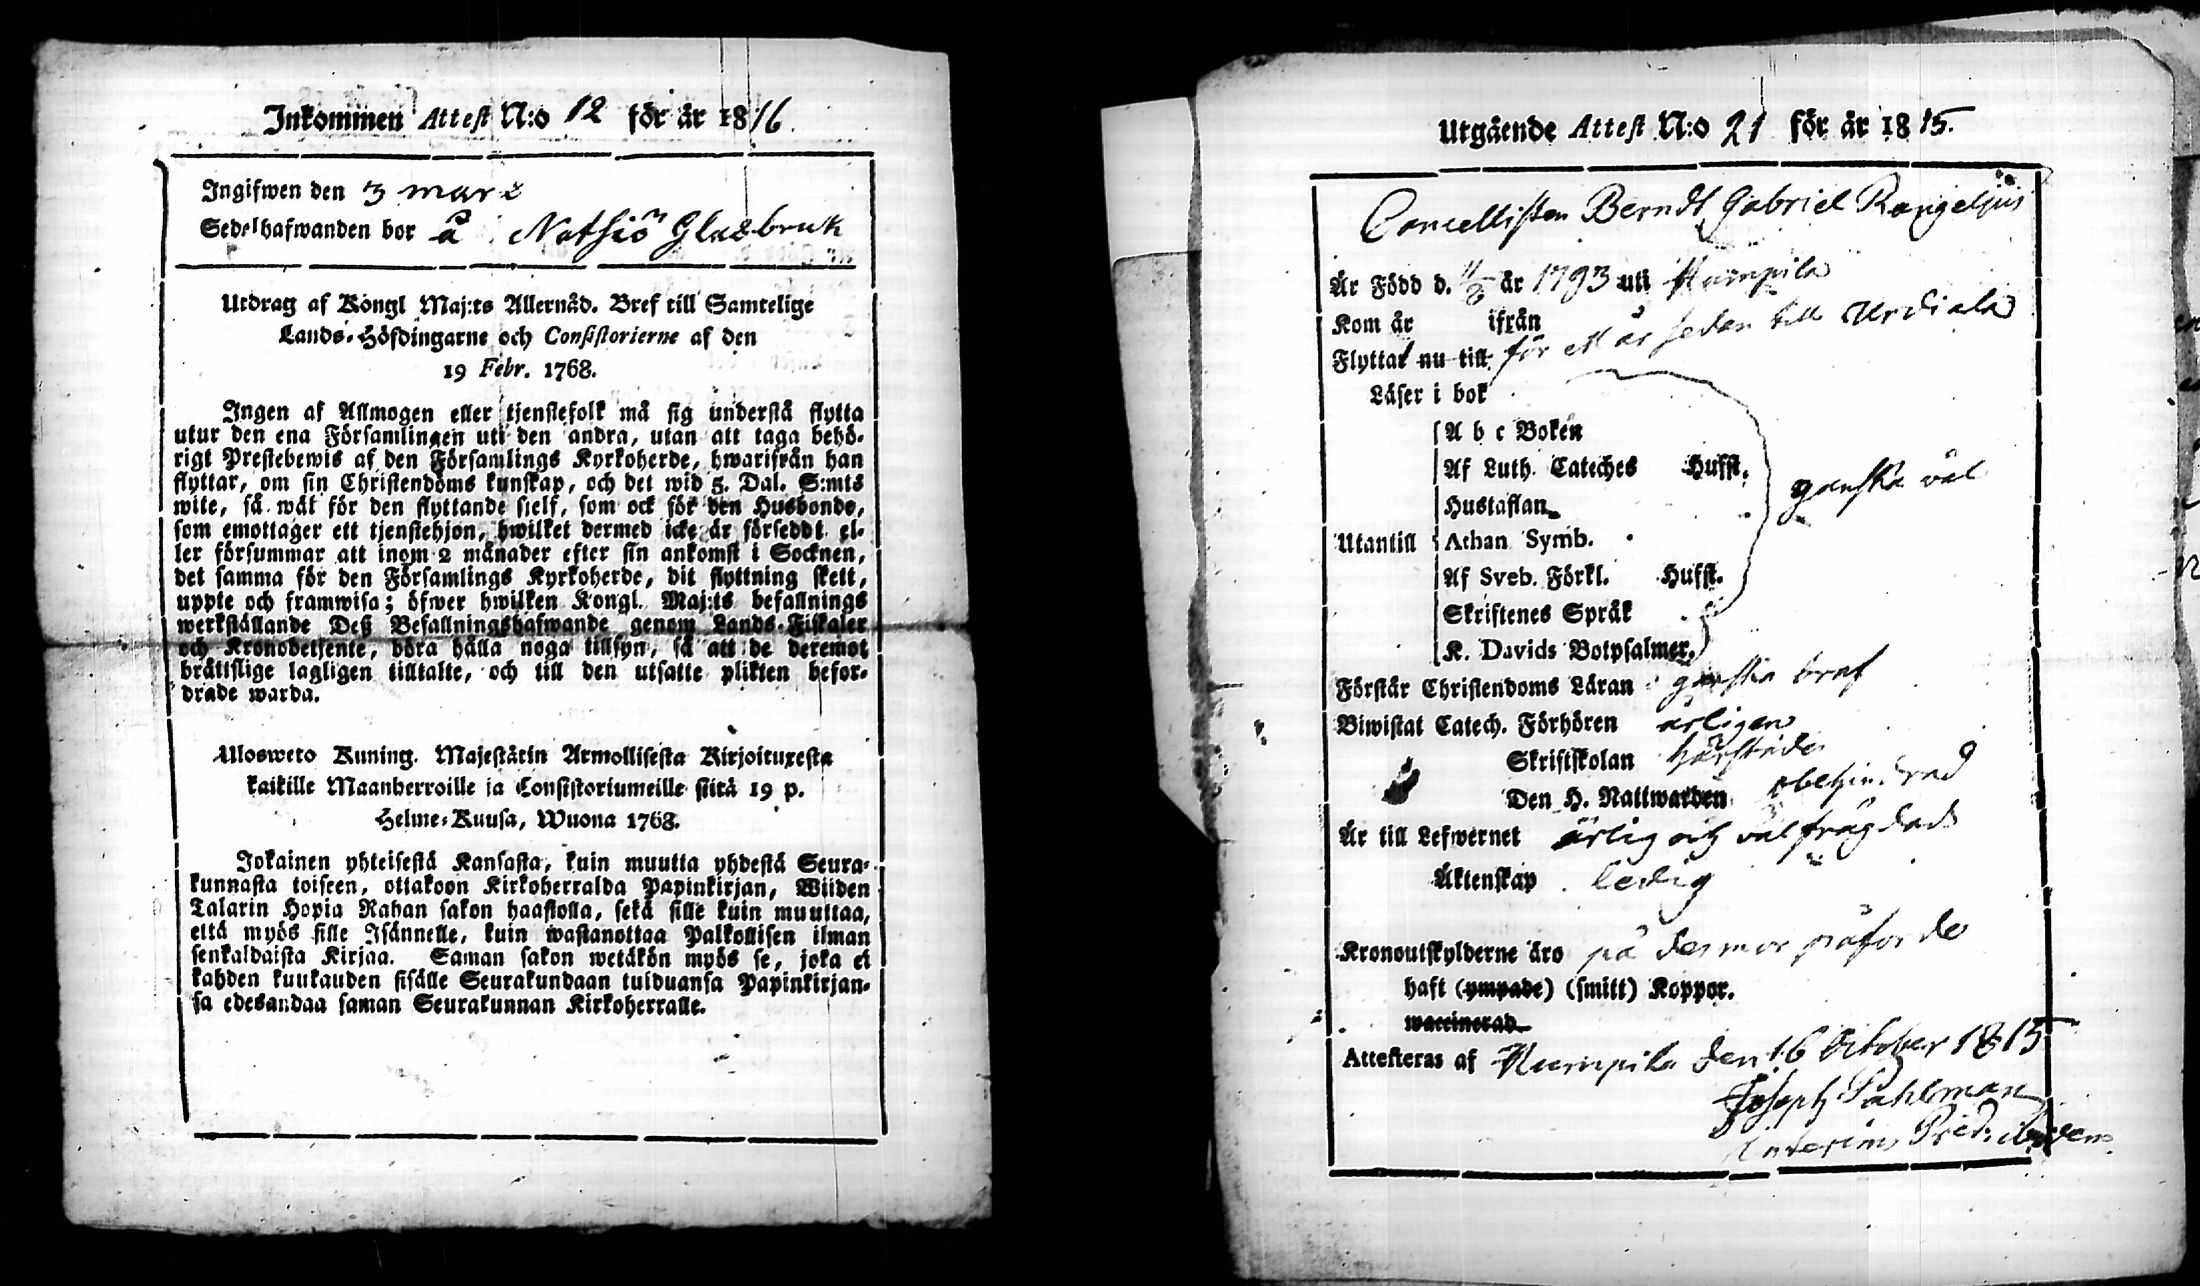 Inkommen Attest N:o 12 för år 1816.
Ingifwen den 3 mars
Sedelhafwanden bor å Notsiö Glasbruk
Utdrag af Kongl Maj:ts Allernåd. Bref till Samtelige
Lands-Höfdingarne och Consistorierne af den
19 Febr. 1768.
Ingen af Allmogen eller tjenstefolk må sig understå flytta
utur den ena Församlingen uti den andra, utan att taga behö-
rigt Prestebewis af den Församlings Kyrkoherde, hwarifrån han
flyttar, om sin Christendoms kunskap, och det wid 5. Dal. S:mts
wite, så wäl för den flyttande sjelf, som ock för den Husbonde,
som emottager ett tjenstehjon, hwilket dermed icke är förseddt el-
ler försummar att inom 2 månader efter sin ankomst i Socknen,
det samma för den Församlings Kyrkoherde, dit flyttning skett,
uppte och framwisa; öfwer hwilken Kongl. Maj:ts befallnings
werkställande Deß Befallningshafwande genom Lands-Fiskaler
och Kronobetjente, böra hålla noga tillsyn, så att de deremot
brätislige lagligen tilltalte, och till den utsatte plikten befor-
drade warda.
Ulosweto Kuning. Majestätin Armollisesta Kirjoituxesta
kaikille Maanherroille ja Consistoriumeille siitä 19 p.
Helme-Kuusa, Wuona 1768.
Jokainen yhteisestä Kansasta, kuin muutta yhdestä Seura-
kunnasta toiseen, ottakoon Kirkoherralda Papinkirjan, Wiiden
Talarin Hopia Rahan sakon haastolla, sekä sille kuin muuttaa,
että myös sille Isännelle, kuin wastanottaa Palkollisen ilman
senkaldaista Kirjaa. Saman sakon wetäkön myös se, joka ei
kahden kuukauden sisälle Seurakundaan tulduansa Papinkirjan-
sa edesandaa saman Seurakunnan Kirkoherralle.
Utgående Attest N:o 21 för år 1815.
Cancellisten Berndt Gabriel Rangelius
Är Född d. år 1793 uti Humpila
Kom år ifrån
Flyttat nu till för ett år sedan till Urdiala
Läser i bok
A b c Boken
Af Luth. Cateches Hufst.
Hustaflan
Utantill Athan Symb. ganska väl
Af Sveb. Förkl. Hufst.
Skriftenes Språk
K. Davids Botpsalmer.
Förstår Christendoms Läran ganska braf
Biwistat Catech. Förhören årligen
Skriftskolan
Den H. Nattwarden obehindrad
Är till Lefwernet ärlig och välfrägdad
Äktenskap ledig
Kronoutskylderne äro
haft (ympade) (smitt) Koppor.
waccinerad
Attesteras af Humpila den 16 October 1815
Joseph Pahlman
Interims